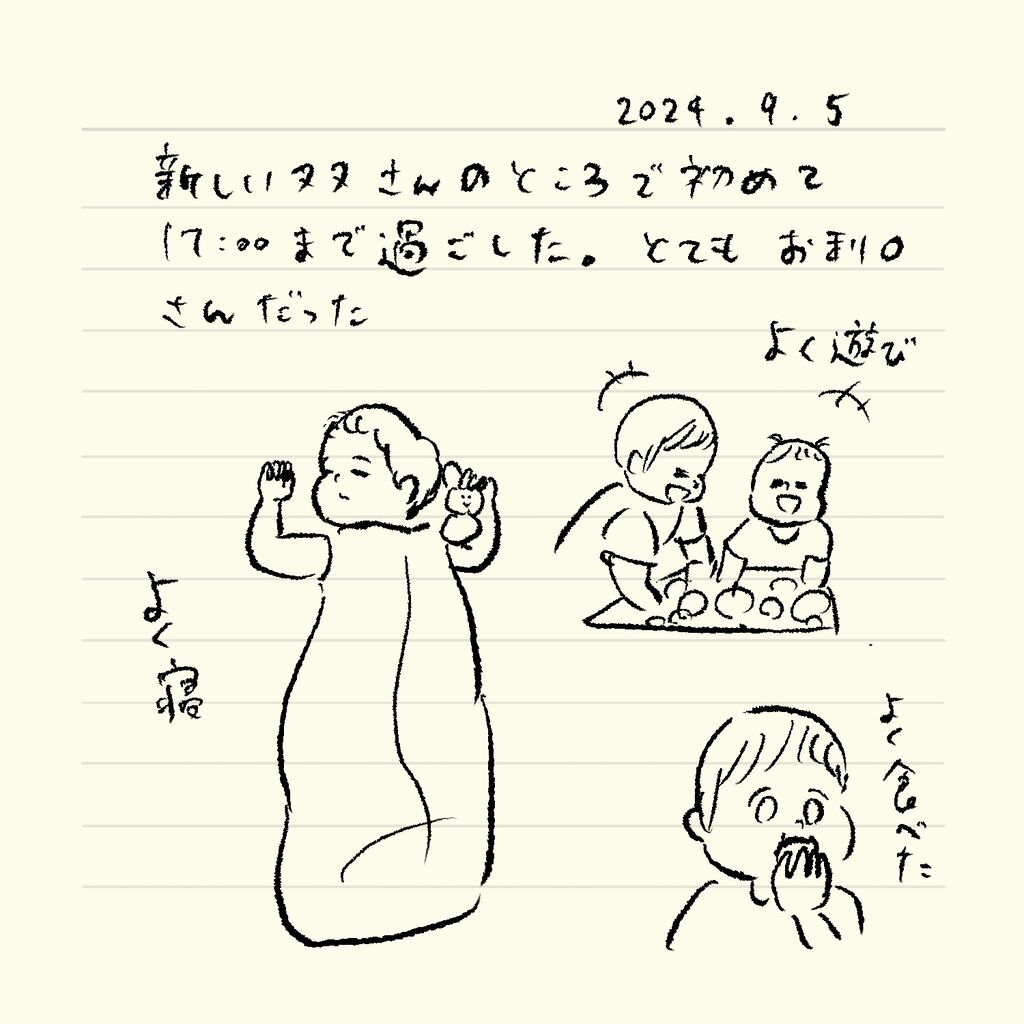 2024.9.5
新しいヌヌさんのところで初めて
17:00まで過ごした。とてもお利口
さんだった
よく遊び
よく寝
よく食べた